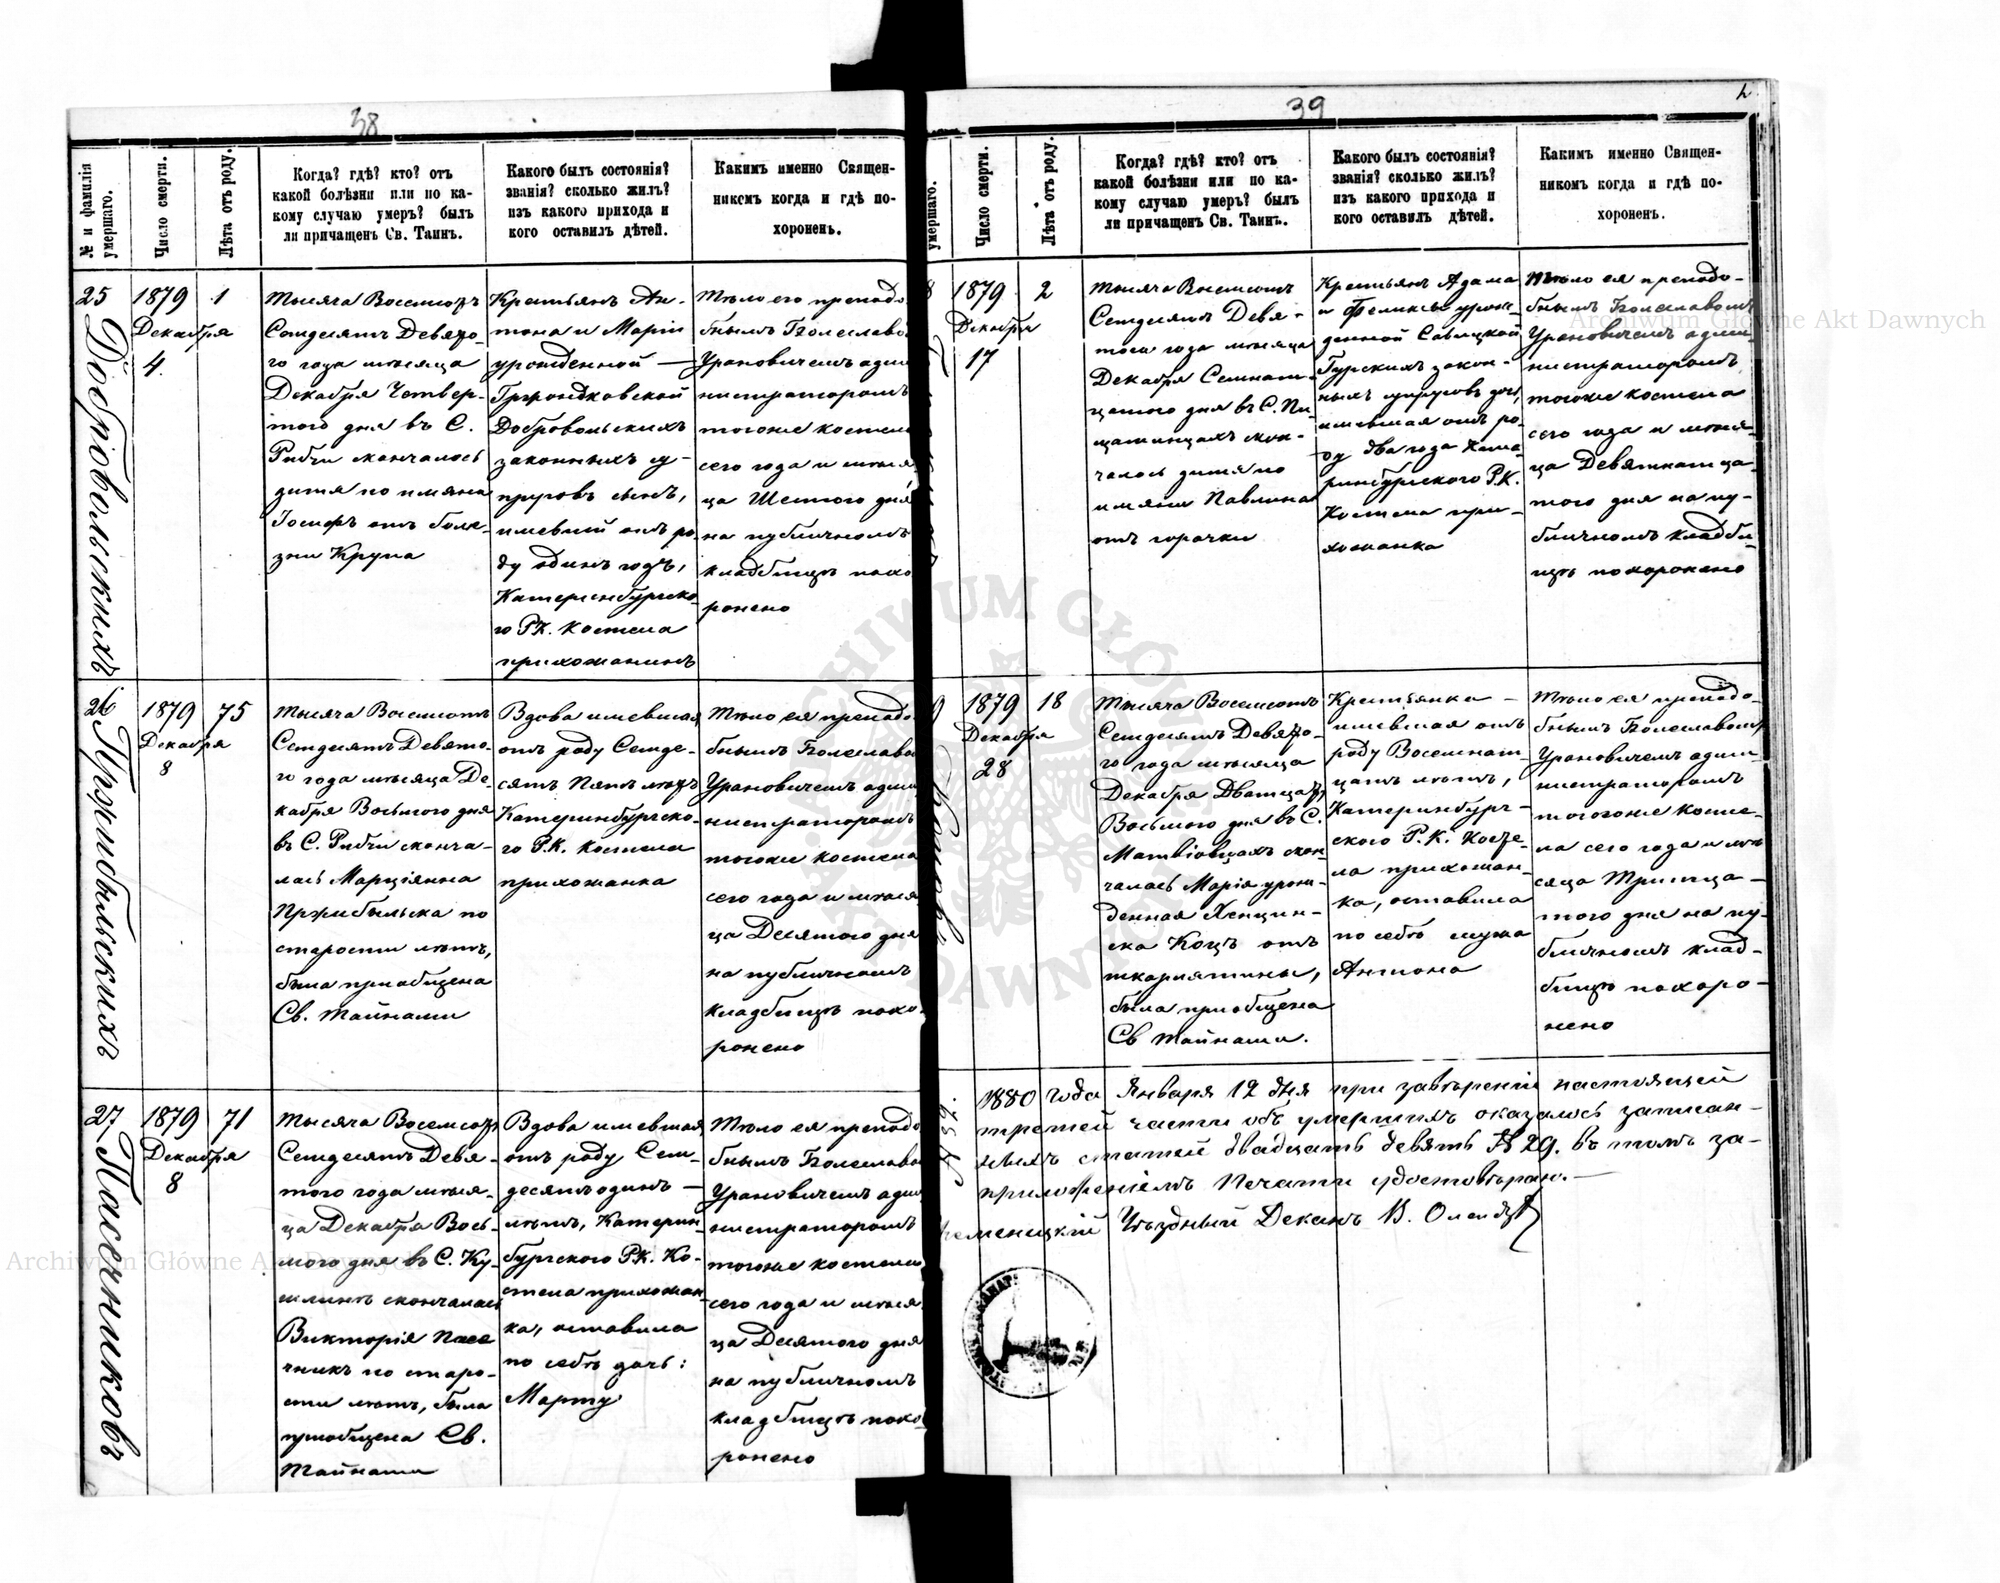 38
№ и фамилія умершаго.
Число смерти.
Лѣта отъ роду.
Когда? гдѣ? кто? отъ
какой болѣзни или по ка-
кому случаю умеръ? былъ
ли причащенъ Св. Таинъ.
Какого былъ состоянія?
званія? сколько жилъ?
изъ какого прихода и
кого оставилъ дѣтей.
Какимъ именно Священ-
никомъ когда и гдѣ по-
хороненъ.
25
Добровольскихъ
1879
Декабря
4.
1
Тысяча Восемсотъ
Семдесятъ Девято-
го года мѣсяца
Декабря Четвер-
того дня въ С.
Рибчи скончалось
дитя по имяни
Іосифъ отъ боле-
зни Крупа
Крестьянъ Ан-
тона и Маріи
урожденной —
Добровольскихъ
законныхъ су-
пруговъ сынъ,
имевший отъ ро-
ду одинъ годъ,
Катеринбургско-
го Р.К. Костела
прихожанинъ
Тѣло его преподо
бнымъ Болеславо
Урановичемъ адми
нистраторомъ
тогоже костела
сего года и мѣся
ца Шестого дня
на публичномъ
кладбищѣ похо
ронено
26
Пржибыльскихъ
1879
Декабря
8
75
Тысяча Восемсотъ
Семдесятъ Девято-
го года мѣсяца Де-
кабря Восьмого дня
въ С. Рибчи сконча-
лась Марціянна
Пржибыльска по
старости лѣтъ,
была приобщена
Св. Тайнами
Вдова имевшая
отъ роду Семде-
сятъ Пять лѣтъ
Катеринбургско-
го Р.К. Костела
прихожанка
Тѣло ея преподо
бнымъ Болеславо
Урановичемъ адми
нистраторомъ
тогоже костела
сего года и мѣся
ца Десятого дня
на публичномъ
кладбищѣ похо-
ронено
27
Пасечниковъ
1879
Декабря
8
71
Тысяча Восемсотъ
Семдесятъ Девя-
того года мѣся-
ца Декабря Вось-
мого дня въ С. Ку-
скончалась
Викторія Пасе
чникъ по старо-
сти лѣтъ, была
приобщена Св.
Тайнами
Вдова имевшая
отъ роду Сем-
десятъ одинъ —
лѣтъ, Катерин-
бургского Р.К. Ко-
стела прихожан-
ка, оставила
по себѣ дочь:
Марту
Тѣло ея преподо
бнымъ Болеславо
Урановичемъ адми
нистраторомъ
тогоже костела
сего года и мѣся
ца Десятого дня
на публичномъ
кладбищѣ похо-
ронено
39
умершаго.
Число смерти.
Лѣта отъ роду.
Когда? гдѣ? кто? отъ
какой болѣзни или по ка-
кому случаю умеръ? былъ
ли причащенъ Св. Таинъ.
Какого былъ состоянія?
званія? сколько жилъ?
изъ какого прихода и
кого оставилъ дѣтей.
Какимъ именно Священ-
никомъ когда и гдѣ по-
хороненъ.
8
1879
Декабря
17
2
Тысяча Восемсотъ
Семдесятъ Девя-
того года мѣсяца
Декабря Семнат-
цатого дня въ С. Пи-
щатинцахъ скон-
чалось дитя по
имяни Павлина
отъ горачки
Крестьян Адама
и Феликсы урож-
денной Савицкой
Гурскихъ закон-
ныхъ супруговъ дочь,
имевшая отъ ро-
ду два года Кате-
ринбургского Р.К.
Костела при-
хожанка
Тѣло ея преподо-
бнымъ Болеславомъ
Урановичемъ адми-
нистраторомъ
тогоже костела
сего года и мѣся-
ца Девятнатца-
того дня на пу-
бличномъ кладби-
щѣ похоронено
9
1879
Декабря
28
18
Тысяча Восемсотъ
Семдесятъ Девято-
го года мѣсяца
Декабря Дватцать
Восьмого дня въ С.
Матвіовцахъ скон-
чалась Марія урож-
денная Хенцин-
ска Коцъ отъ
была приобщена
Св Тайнами.
Крестьянка —
имевшая отъ
роду Восемнат-
цать лѣтъ,
Катеринбург-
ского Р.К. Косте-
ла прихожан-
ка, оставила
по себѣ мужа
Антона
Тѣло ея преподо-
бнымъ Болеславомъ
Урановичемъ адми-
нистраторомъ
тогоже косте-
ла сего года и мѣ-
сяца Тритца-
того дня на пу-
бличномъ клад-
бищѣ похоро-
нено
1880 года Января 12 дня при завѣреніи настоящей
третей части объ умершихъ оказалось записан-
ныхъ статей двадцать девять № 29. въ томъ за-
приложеніемъ Печати удостовѣряю. —
Уѣздный Деканъ В.
Archiwum Główne Akt Dawnych
Archiwum Główne Akt Dawnych
ARCHIWUM GŁÓWNE AKT DAWNYCH